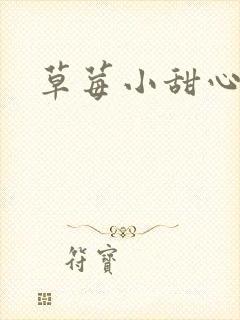 草莓小甜心
符寶